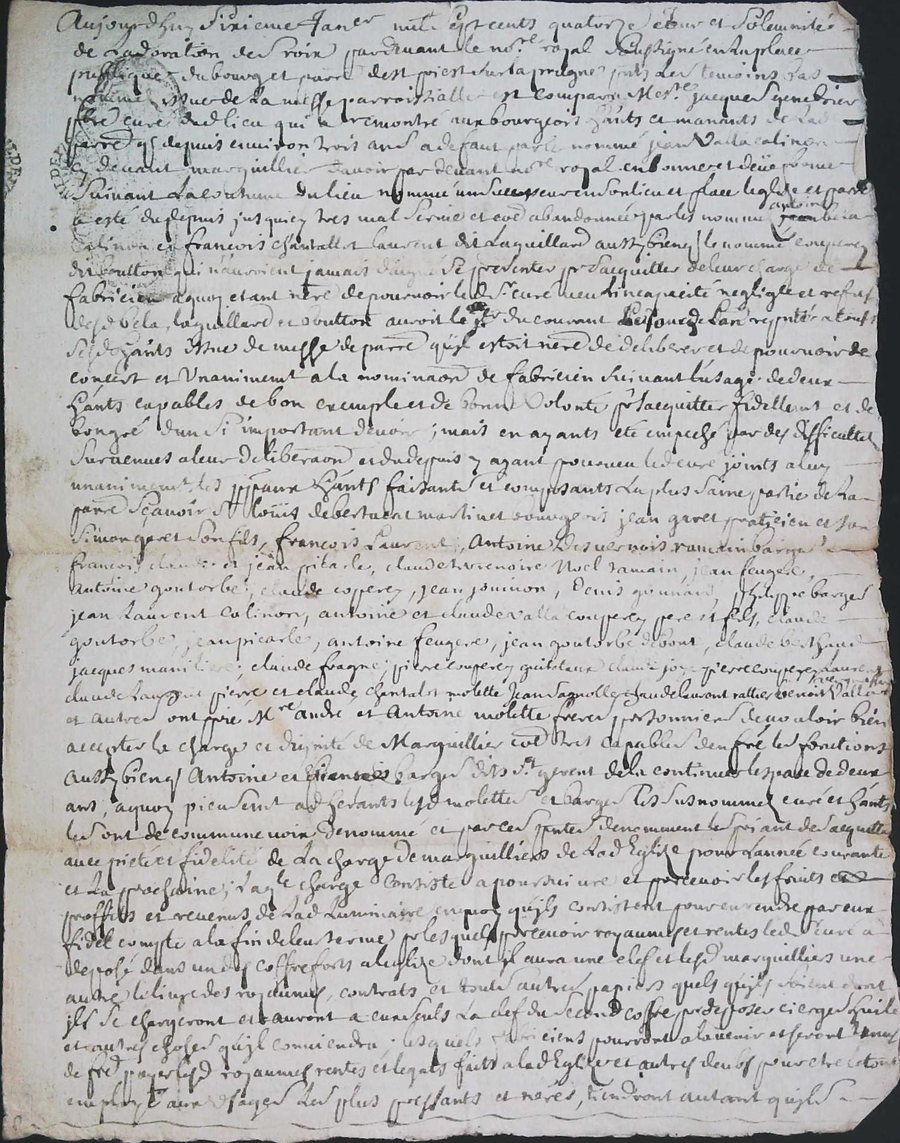 Aujourdhuy Sixieme Janer mil sept cents quatorze jour et Solemnité
de Ladoration des roix pardevant le nore royal Soussigné en Laplace
publique du bourg et parre de St priest Sur la prugne pnts Les temoins bas
nommé issue de La messe parroissialle est comparu Mesre jacques gendrier
ptre curé dud lieu qui a remontré aux bourgeois hants et manants de Lad
parre qs depuis environ trois ans a defaut par le nommé jean Valla colinon
cy devant marguillier davoir par devant nore royal en bonne et deüe forme
Suivant La coutume du lieu nommé un Successeur en Son lieu et place leglize et parre
a esté du depuis jusquicy tres mal Servie et abandonnée par les nommé antoine bela
colinon et francois chantallot laurent dit Laquillard aussy bien q le nommé couperey
dit boutton qui nauroient jamais daigné Se presenter pr Sacquitter de leur charge de
fabricien aquoy etant nere de pourvoir led Sr curé veu lincapacité negligle et refus
desd bela, laquillard et boutton auroit le du courant Lejour de Lan representé a tous
Sesd hants issue de messe de parre quil estoit nere de deliberer et de pourvoir de
concert et Unanimemt a la nominaon de fabricien Suivant lusage de deux
hants capables de bon exemple et de bonne Volonté pr Sacquitter fidellemt et de
bongré dun Si important devoir; mais en ayants eté empeché par des difficultes
Survenues a leur deliberaon et du depuis y ayant pourveu led curé joints a luy
unanimemt les ppaux hants faisants et composants La plus Saine partie de La
parre Sçavoir Sr Loüis debertucat martinet bourgeois jean garet praticien et
Simon garet Son fils, francois Laurent, Antoine Desvernois romain barge
francois claude et jean picarle, claude treinoire Noel tamain, jean feugere,
Antoine goutorbe, claude copperey, jean jouinon, Denis gounard, philippe barges
jean Laurent Colinon, antoine et claude valla couperey pere et fils, claude
goutorbe, jean picarle, antoine feugere, jean goutorbe debout, claude berthaud
jacques maniliere, claude fragne; pierre couperey guitelaux claude joye pierre couperey Laurent
claude Laurent pierre et claude chantalot molette Jean Sagnolle claude laurent rattier benoit Valla
et autres ont prié Mre andré et Antoine molette freres personniers de vouloir bien
accepter la charge et dignité de Marguillier tres capables den fre les fonctions
Aussy bien q Antoine et francois barges dits Sr gerent de la continuer lespace de deux
ans, aquoy pieusemt adherants lesd molettes et barges les Susnommez curé et hants
les ont de commune voix denommé et par ces pntes denomment les priant de Sacquitter
avec pieté et fidelité de La charge de marguilliers de Lad Eglize pour Lannée courante
et La prochaine; Laqle charge consiste a poursuivre et percevoir les fruits et
proffits et revenus de Lad Luminaire en quoy quils consistent pour en rendre par eux
fidel compte a la fin de leur terme, pr lesquels percevoir royaumes et rentes led Sr curé a
deposé dans un des coffreforts a leglize dont il aura une clef et lesd marguilliers une
autre, le livre des royaumes, contrats et tous autres papiers quels quils Soient dont
ils Se chargeront et auront a eux Seuls La clef du Second coffre pr deposer cierges huile
et autres choses quil conviendra; lesquels fabriciens pourront a lavenir et Seront tenus
de fre payer lesd royaumes rentes et legats faits a lad Eglize et autres deubs pour etre le tout
employé aux Usages Les plus pressants et neres, tiendront autant quils